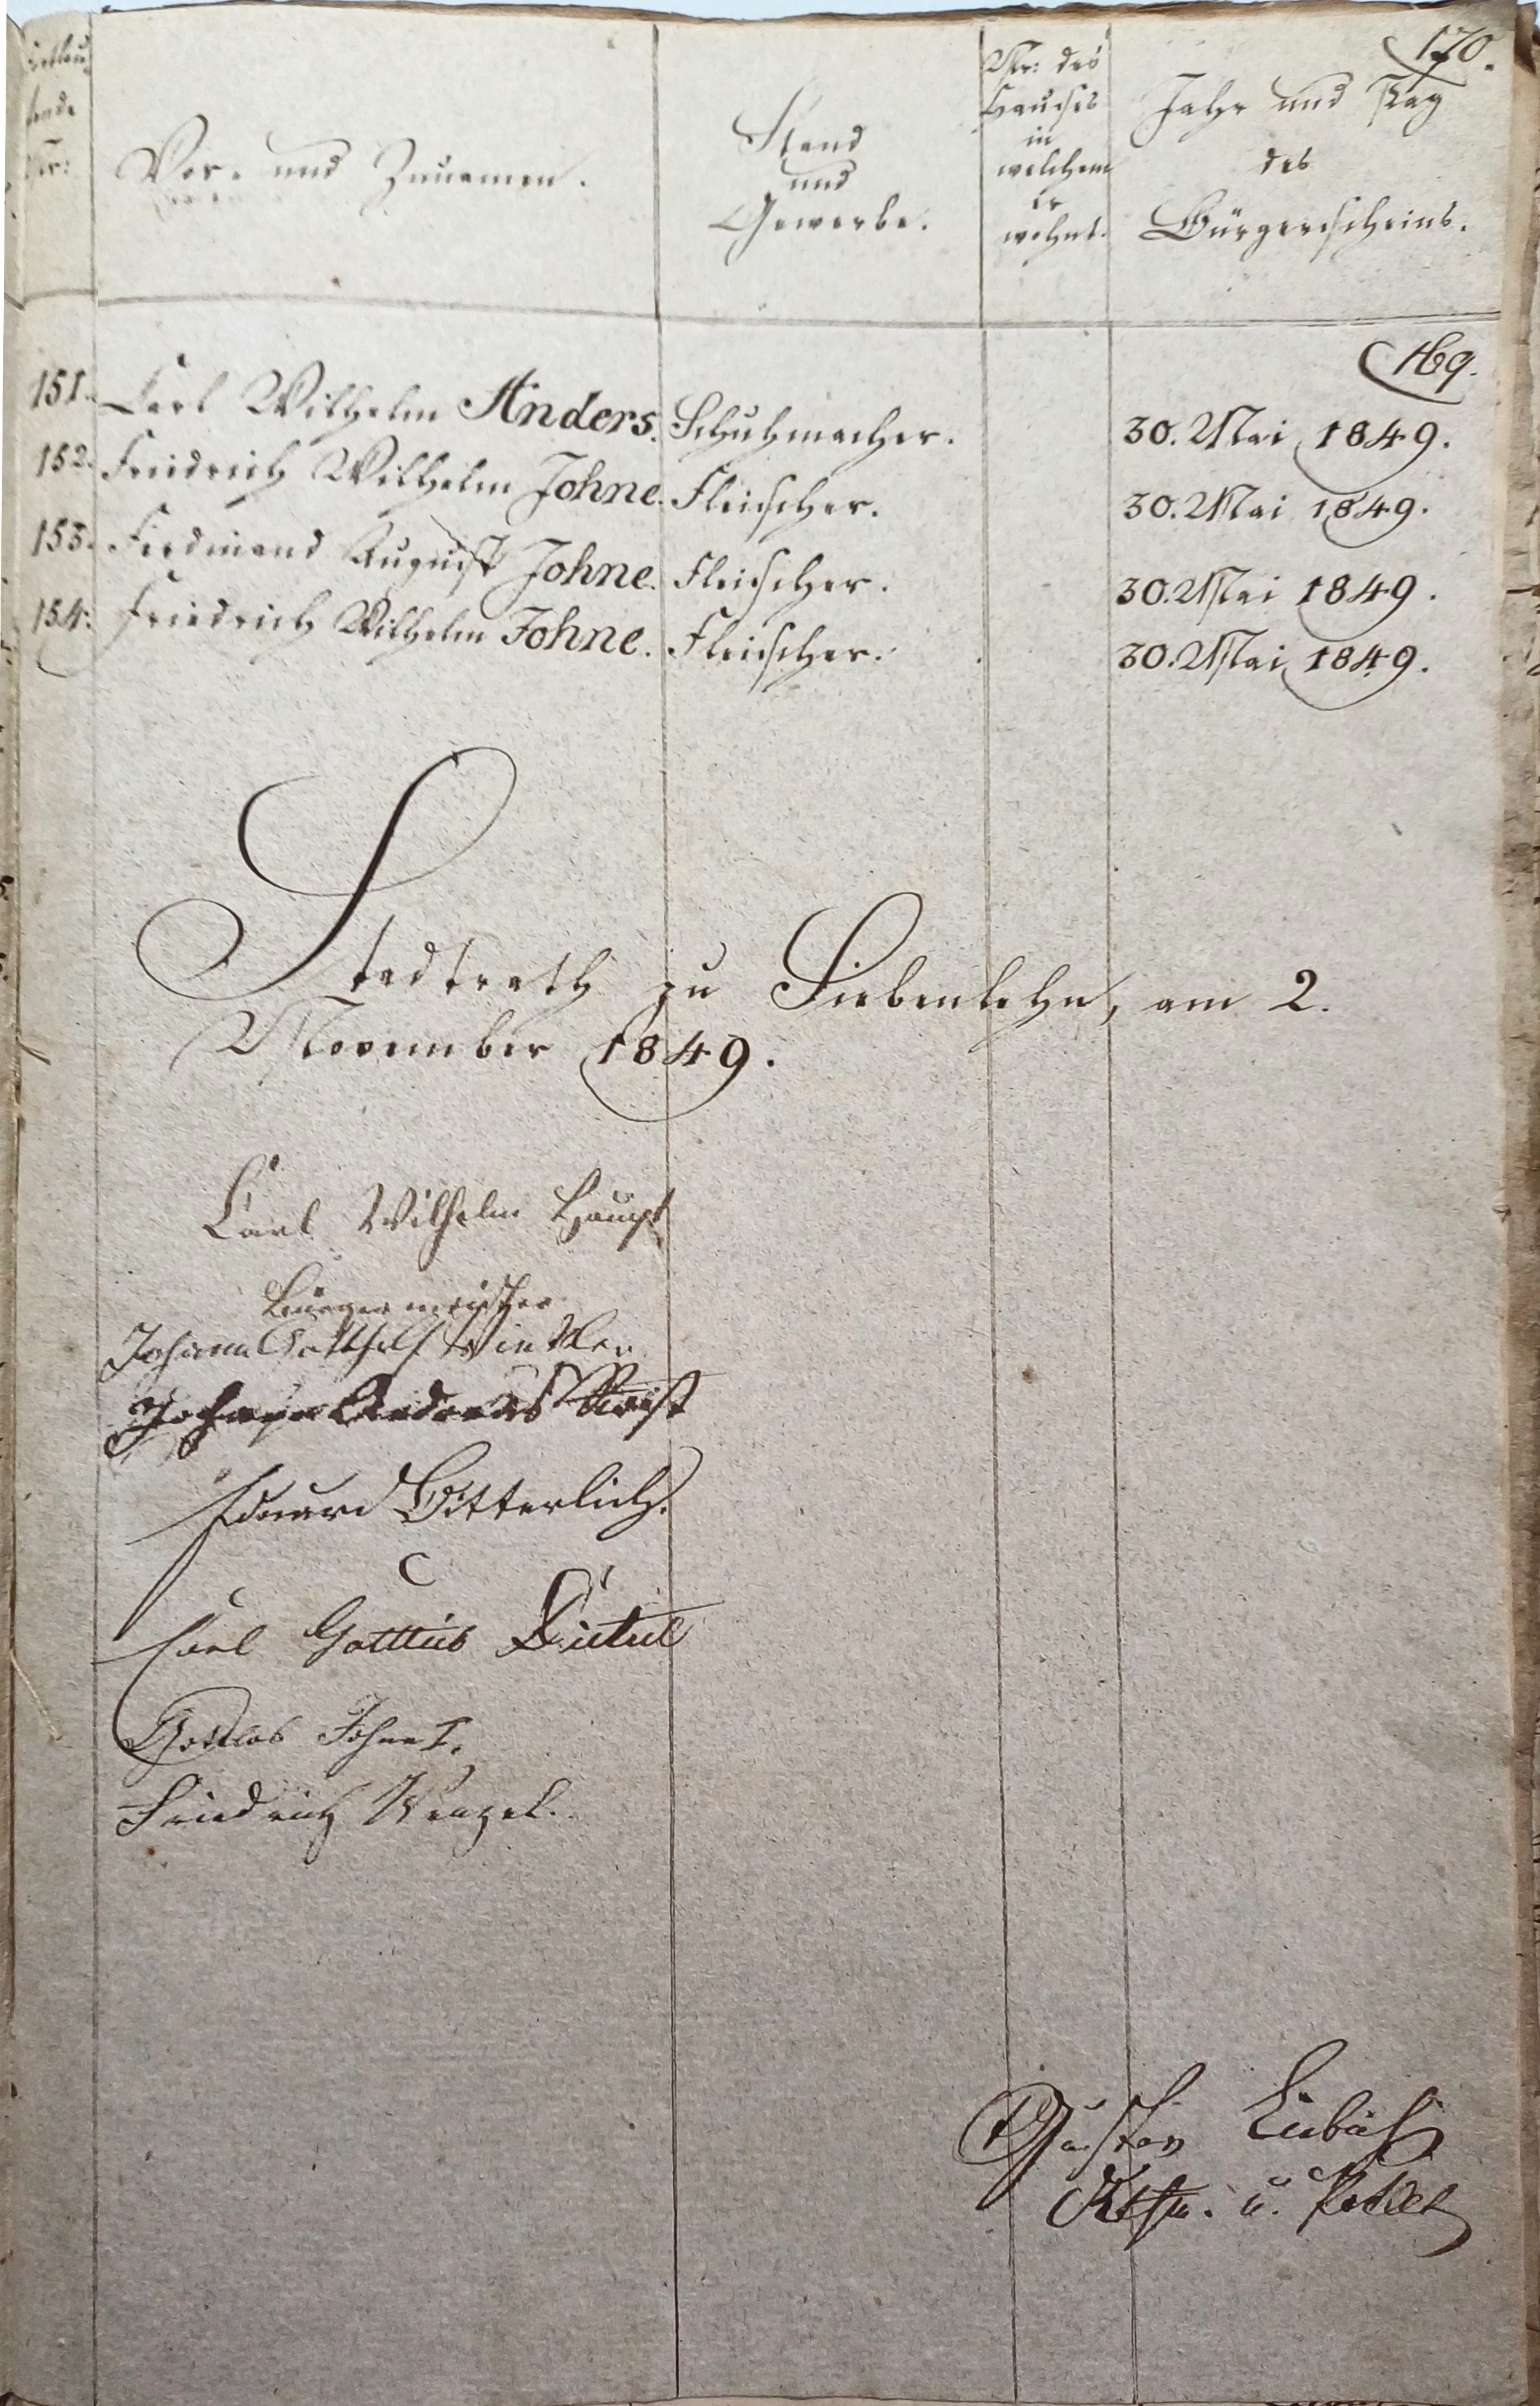 170.
Vor- und Zunamen.
Stand
und
Gewerbe.
Nr: des
Hauses
in
welchem
er
wohnt.
Jahr und Tag
des
Bürgerscheins.
169.
151. Carl Wilhelm Anders. Schuhmacher. 30. Mai 1849.
152. Friedrich Wilhelm Johne. Fleischer. 30. Mai 1849.
153. Ferdinand August Johne. Fleischer. 30. Mai 1849.
154. Friedrich Wilhelm Johne. Fleischer. 30. Mai 1849.
Stadtrath zu Siebenlehn, am 2.
November 1849.
Carl Wilhelm Haupt
Bürgermeister
Johann Gotthelf Winkler
Johann Andreas
Eduard Bitterlich.
Carl Gottlieb
Gottlob Johne I.
Friedrich Wenzel.
Gustav
u.